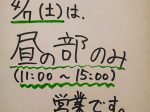 4/1(土)は、
昼の部のみ
(11:00～15:00)
営業です。